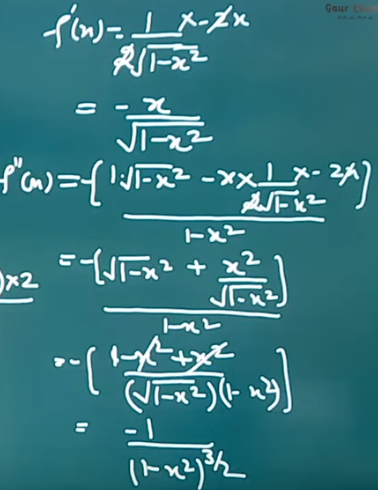 Gaur
f'(x) = 1/(2√(1-x²)) × -2x
= -x/√(1-x²)
f''(x) = -[1·√(1-x²) - x × 1/(2√(1-x²)) × -2x]/(1-x²)
)×2
= -[√(1-x²) + x²/√(1-x²)]/(1-x²)
= -[(1-x²+x²)/((√(1-x²))(1-x²))]
= -1/(1-x²)^(3/2)